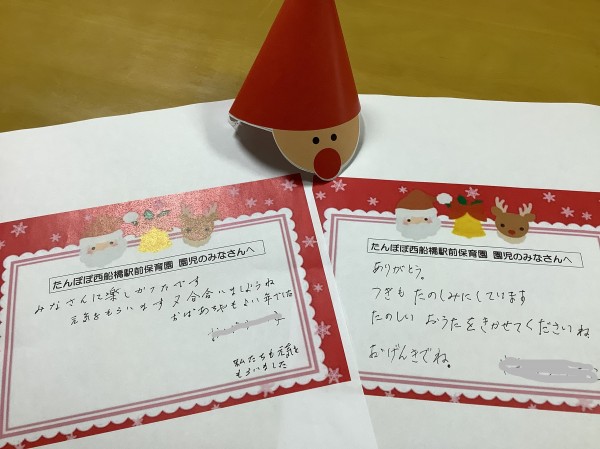 たんぽぽ西船橋駅前保育園 園児のみなさんへ
みなさんに楽しかったです
元気をもらいます又会合いましょうね
おばあちゃもよい年でた
私たちも元気を
もらいました
たんぽぽ西船橋駅前保育園 園児のみなさんへ
ありがとう。
つぎも たのしみにしています
たのしい おうたをきかせてくださいね
おげんきでね。